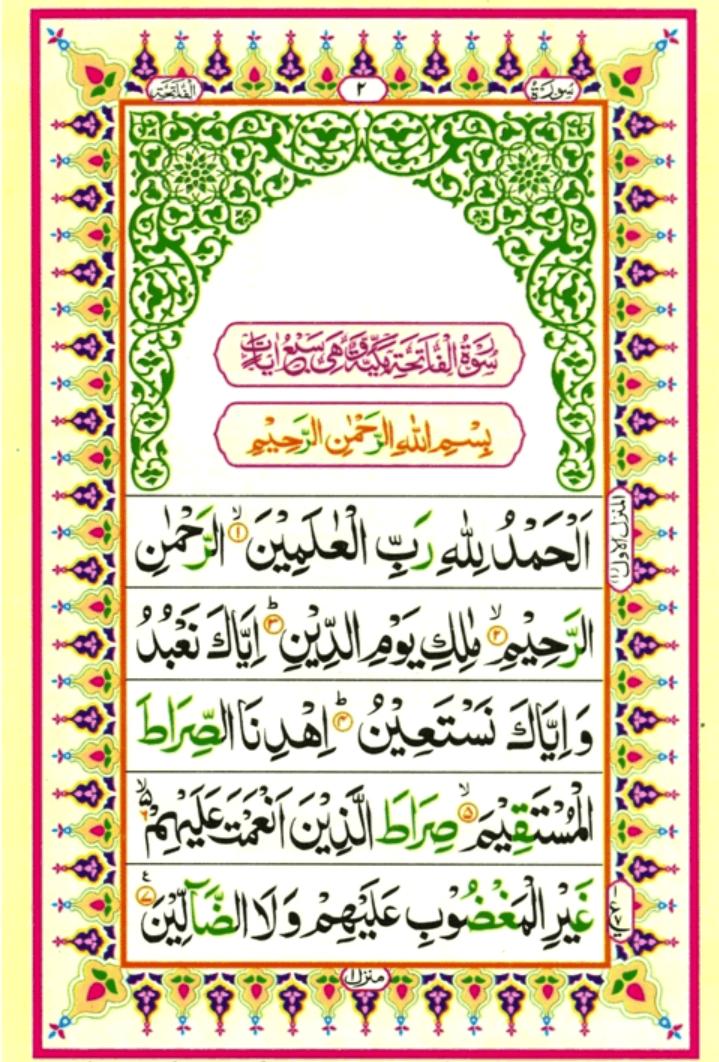 سورة
٢
الفاتحة
سُوْرَةُ الْفَاتِحَةِ مَكِّيَّةٌ وَّهِىَ سَبْعُ اٰيَاتٍ
بِسْمِ اللّٰهِ الرَّحْمٰنِ الرَّحِيْمِ
اَلْحَمْدُ لِلّٰهِ رَبِّ الْعٰلَمِيْنَ ۙ‏﴿١﴾ الرَّحْمٰنِ
الرَّحِيْمِ ۙ‏﴿٢﴾ مٰلِكِ يَوْمِ الدِّيْنِ ؕ‏﴿٣﴾ اِيَّاكَ نَعْبُدُ
وَ اِيَّاكَ نَسْتَعِيْنُ ؕ‏﴿٤﴾ اِهْدِنَا الصِّرَاطَ
الْمُسْتَقِيْمَ ۙ‏﴿٥﴾ صِرَاطَ الَّذِيْنَ اَنْعَمْتَ عَلَيْهِمْ ۙ ٦
غَيْرِ الْمَغْضُوْبِ عَلَيْهِمْ وَ لَا الضَّآلِّيْنَ ﴿٧﴾
المنزل الاول
منزل ١